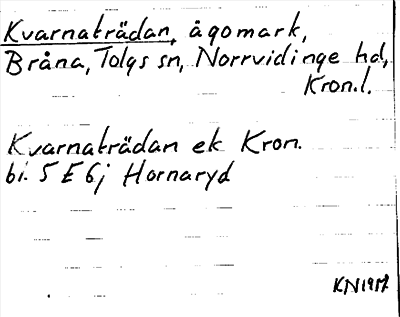 Kvarnaträdan, ägomark,
Bråna, Tolgs sn, Norrvidinge hd,
Kron.l.
Kvarnaträdan ek Kron.
bl. 5 E 6j Hornaryd